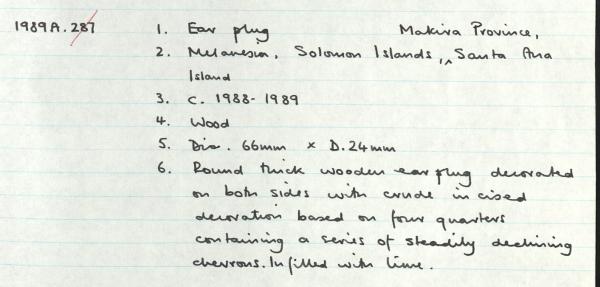 1989A.287 1. Ear plug Makira Province,
2. Melanesia, Solomon Islands, ^ Santa Ana
Island
3. c. 1988-1989
4. Wood
5. Dia. 66mm x D.24mm
6. Round thick wooden ear plug decorated
on both sides with crude incised
decoration based on four quarters
containing a series of steadily declining
chevrons. Infilled with lime.